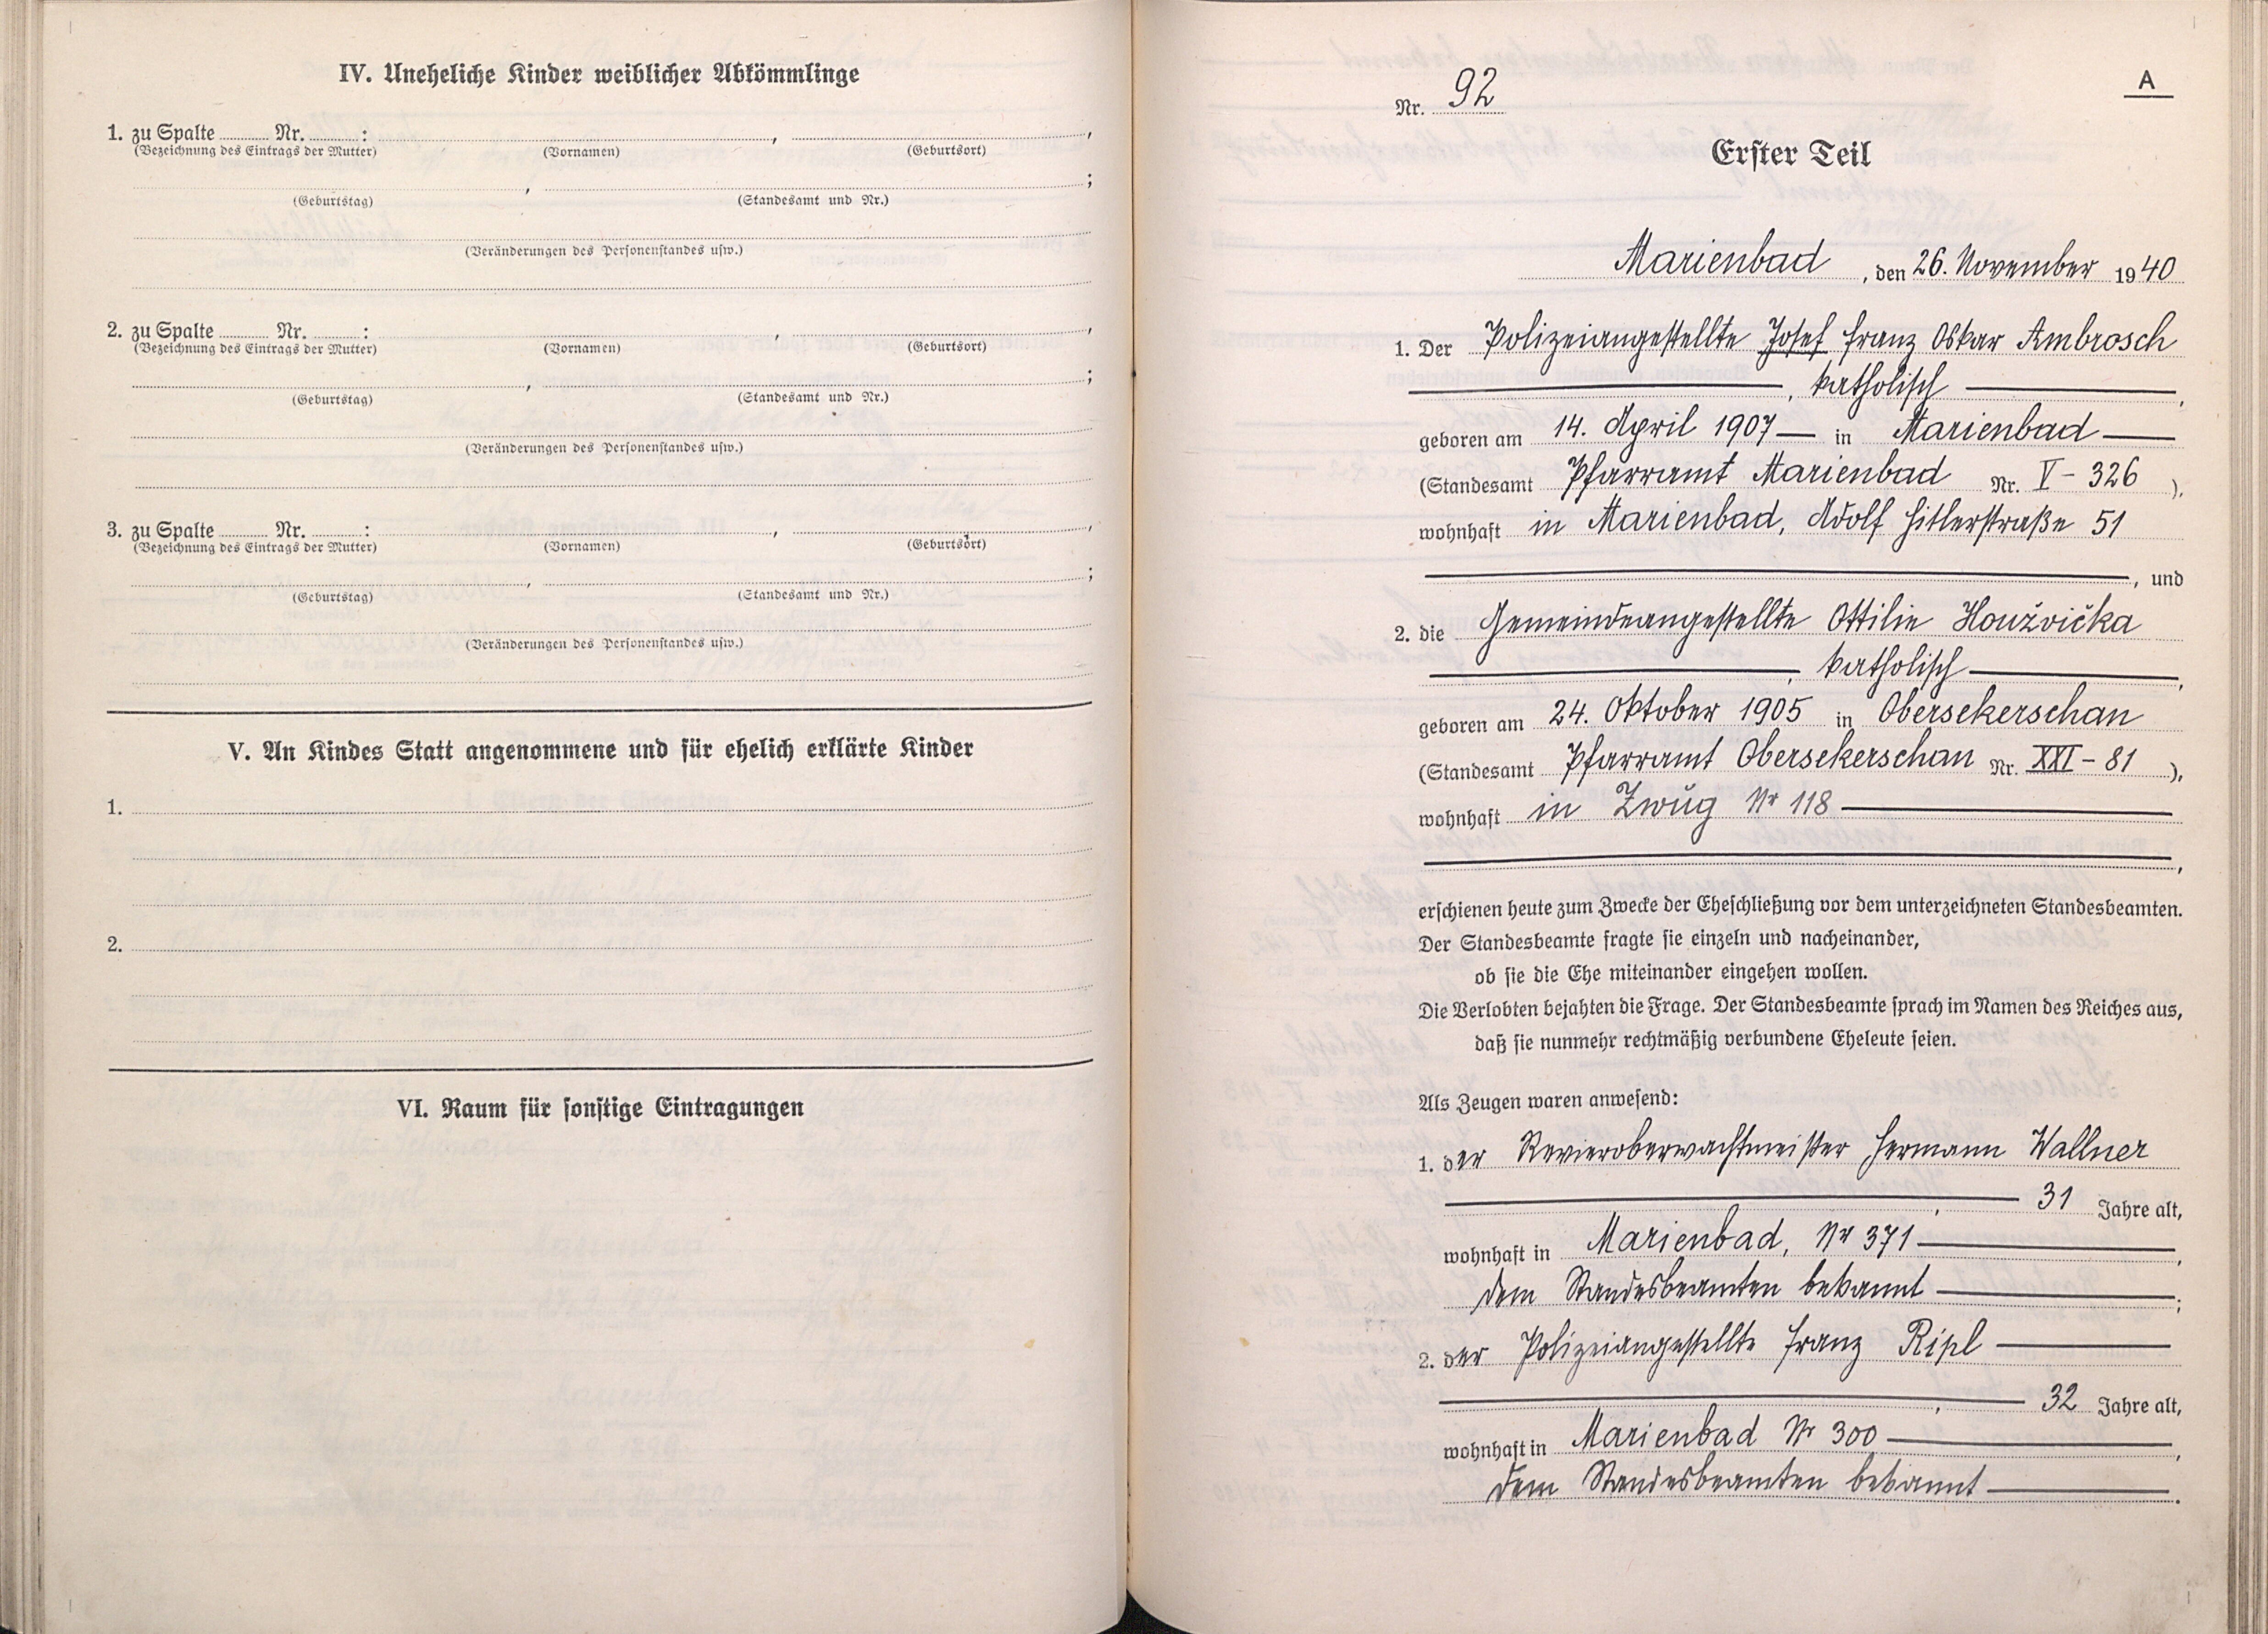 IV. Uneheliche Kinder weiblicher Abkömmlinge
1. zu Spalte ........ Nr. ........ : , ,
(Bezeichnung des Eintrags der Mutter) (Vornamen) (Geburtsort)
, ;
(Geburtstag) (Standesamt und Nr.)
(Veränderungen des Personenstandes usw.)
2. zu Spalte ........ Nr. ........ : , ,
(Bezeichnung des Eintrags der Mutter) (Vornamen) (Geburtsort)
, ;
(Geburtstag) (Standesamt und Nr.)
(Veränderungen des Personenstandes usw.)
3. zu Spalte ........ Nr. ........ : , ,
(Bezeichnung des Eintrags der Mutter) (Vornamen) (Geburtsort)
, ;
(Geburtstag) (Standesamt und Nr.)
(Veränderungen des Personenstandes usw.)
V. An Kindes Statt angenommene und für ehelich erklärte Kinder
1.
2.
VI. Raum für sonstige Eintragungen
A
Nr. 92
Erster Teil
Marienbad, den 26. November 1940
1. Der Polizeiangestellte Josef Franz Oskar Ambrosch
, katholisch ,
geboren am 14. April 1907 in Marienbad
(Standesamt Pfarramt Marienbad Nr. V - 326 ),
wohnhaft in Marienbad, Adolf Hitlerstraße 51
, und
2. die Gemeindeangestellte Ottilie Houžvička
, katholisch ,
geboren am 24. Oktober 1905 in Obersekerschan
(Standesamt Pfarramt Obersekerschan Nr. XXI - 81 ),
wohnhaft in Zwug Nr 118
,
erschienen heute zum Zwecke der Eheschließung vor dem unterzeichneten Standesbeamten.
Der Standesbeamte fragte sie einzeln und nacheinander,
ob sie die Ehe miteinander eingehen wollen.
Die Verlobten bejahten die Frage. Der Standesbeamte sprach im Namen des Reiches aus,
daß sie nunmehr rechtmäßig verbundene Eheleute seien.
Als Zeugen waren anwesend:
1. der Revieroberwachtmeister Hermann Wallner
, 31 Jahre alt,
wohnhaft in Marienbad, Nr 371 ,
dem Standesbeamten bekannt ;
2. der Polizeiangestellte Franz Ripl
, 32 Jahre alt,
wohnhaft in Marienbad Nr 300 ,
dem Standesbeamten bekannt .